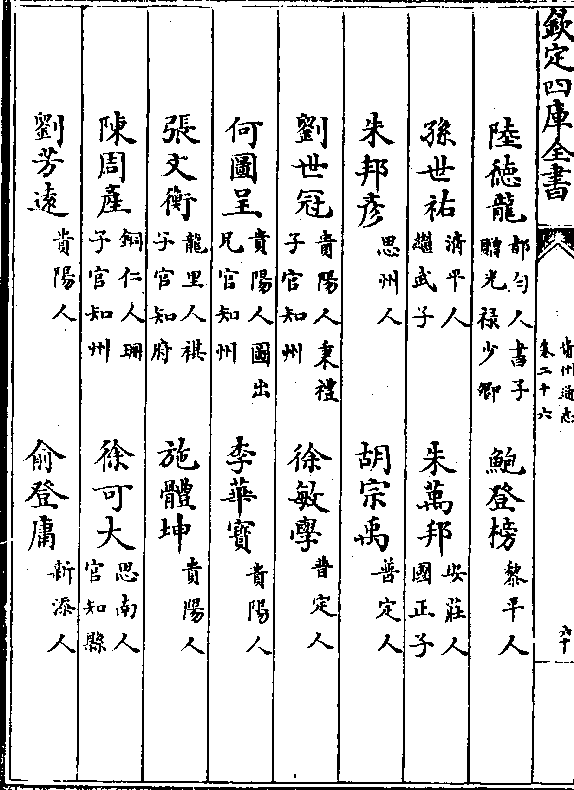 欽定四庫全書
貴州通志
卷二十六
六十
陸德龍 都勻人書子贈光禄少卿 鮑登榜 黎平人
孫世祐 清平人繼武子 朱萬邦 安莊人國正子
朱邦彥 思州人 胡宗禹 普定人
劉世冠 貴陽人秉禮子官知州 徐敏學 普定人
何圖呈 貴陽人圖出兄官知州 李華寶 貴陽人
張文衡 龍里人祺子官知府 施體坤 貴陽人
陳周產 銅仁人珊子官知州 徐可大 思南人官知縣
劉芳遠 貴陽人 俞登庸 新添人